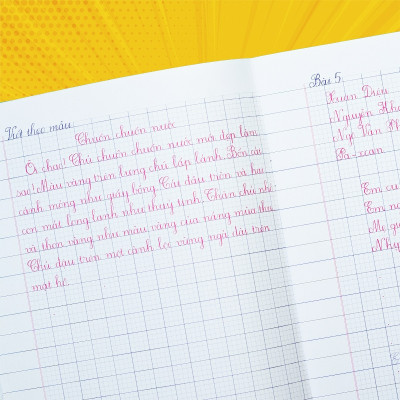 Viết theo mẫu:
Chuồn chuồn nước
Ôi chao! Chú chuồn chuồn nước mới đẹp làm
sao! Màu vàng trên lưng chú lấp lánh. Bốn cái
cánh mỏng như giấy bóng. Cái đầu tròn và hai
con mắt long lanh như thuỷ tinh. Thân chú nhỏ
và thon vàng như màu vàng của nắng mùa thu.
Chú đậu trên một cành lộc vừng ngả dài trên
mặt hồ.
Bài 5
Xuân Diệu
Nguyễn
Ngô Văn
Pa-xcan
Em
Em
Mẹ